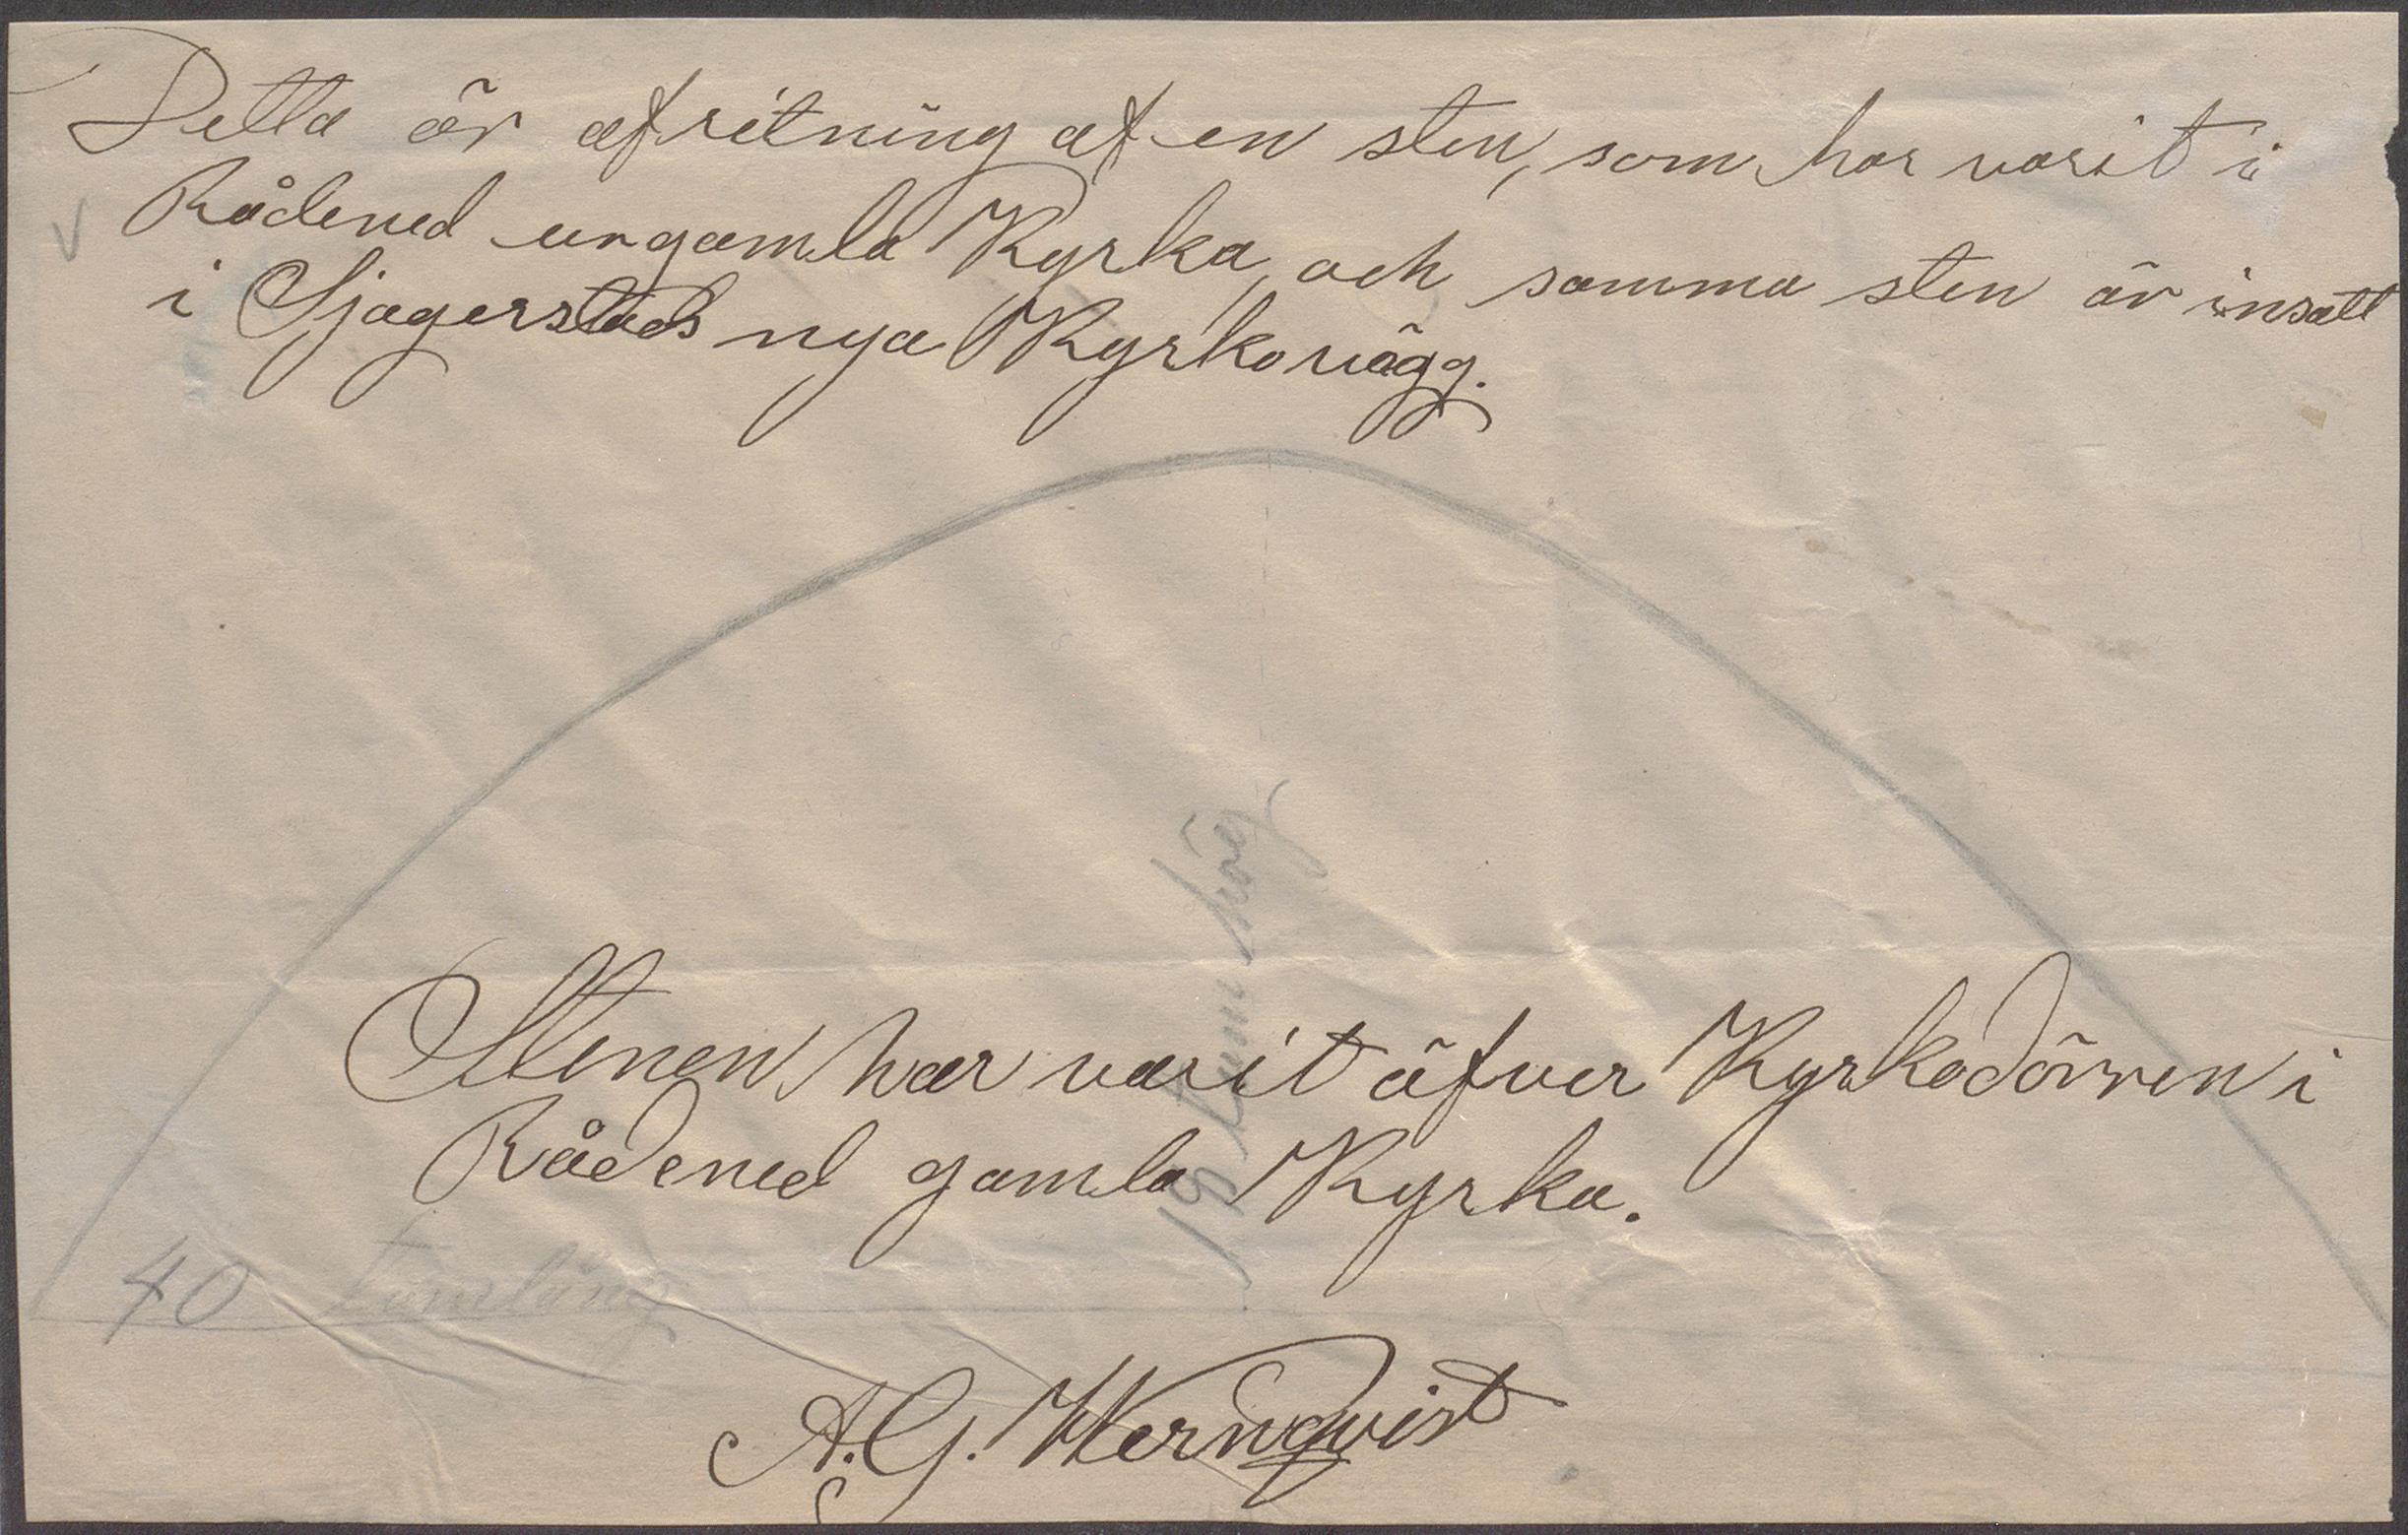 Detta är afritning af en sten, som har varit i
Rådened urgamla Kyrka, och samma sten är insatt
i Sjogerstads nya Kyrkovägg.
19 tum hög
Stenen har varit öfver Kyrkodörren i
Rådened gamla Kyrka.
40 tumlång
A. G. Wernqvist